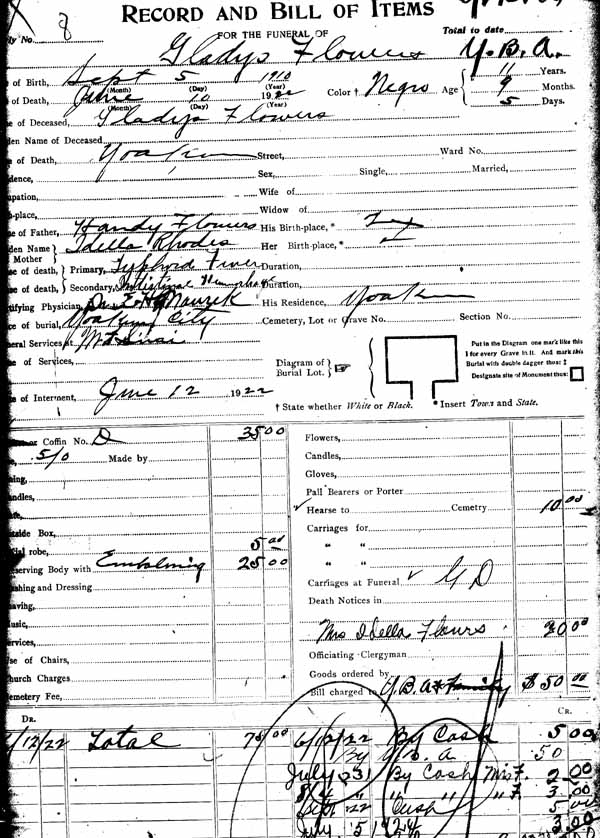 RECORD AND BILL OF ITEMS
FOR THE FUNERAL OF Total to date
No. 8 Gladys Flowers Y.B.A.
of Birth, Sept 5 1910 11 Years.
(Month) (Day) (Year) Color † Negro Age 9 Months.
of Death, June 10 1922 5 Days.
(Month) (Day) (Year)
of Deceased Gladys Flowers
Name of Deceased
of Death, Yoakum Street, Ward No.
Sex, Single, Married,
Wife of
Widow of
of Father, Handy Flowers His Birth-place, * Tex
Name Mother Idella Rhodes Her Birth-place, * "
of death, Primary, Typhoid Fever Duration,
of death, Secondary, Duration,
Physician, His Residence, Yoakum
of burial, Yoakum City Cemetery, Lot or Grave No. Section No.
Services at Mt Sinai
of Services,
Diagram of Burial Lot.
Put in the Diagram one mark like this
I for every Grave in it. And mark this
Burial with double dagger thus: ‡
Designate site of Monument thus:
of Interment, June 12 1922
† State whether White or Black. * Insert Town and State.
Coffin No. D 35 00
5/0 Made by
Box,
robe, 5 00
Body with Embalming 25 00
and Dressing
of Chairs,
Charges
Fee,
Flowers,
Candles,
Gloves,
Pall Bearers or Porter
Hearse to Cemetry 10 00
Carriages for
" "
" "
Carriages at Funeral
Death Notices in
Mrs Idella Flours 20 00
Officiating Clergyman
Goods ordered by
Bill charged to Y.B.A & Family $50 00
DR. CR.
/12/22 Total 75 00 6/12/22 By Cash 5 00
By Y.B.A. 50
July 31 By Cash Mrs F. 2.00
8/4 " " " F 3.00
Sept 22 Cash 5 00
July 5 1924 3 00